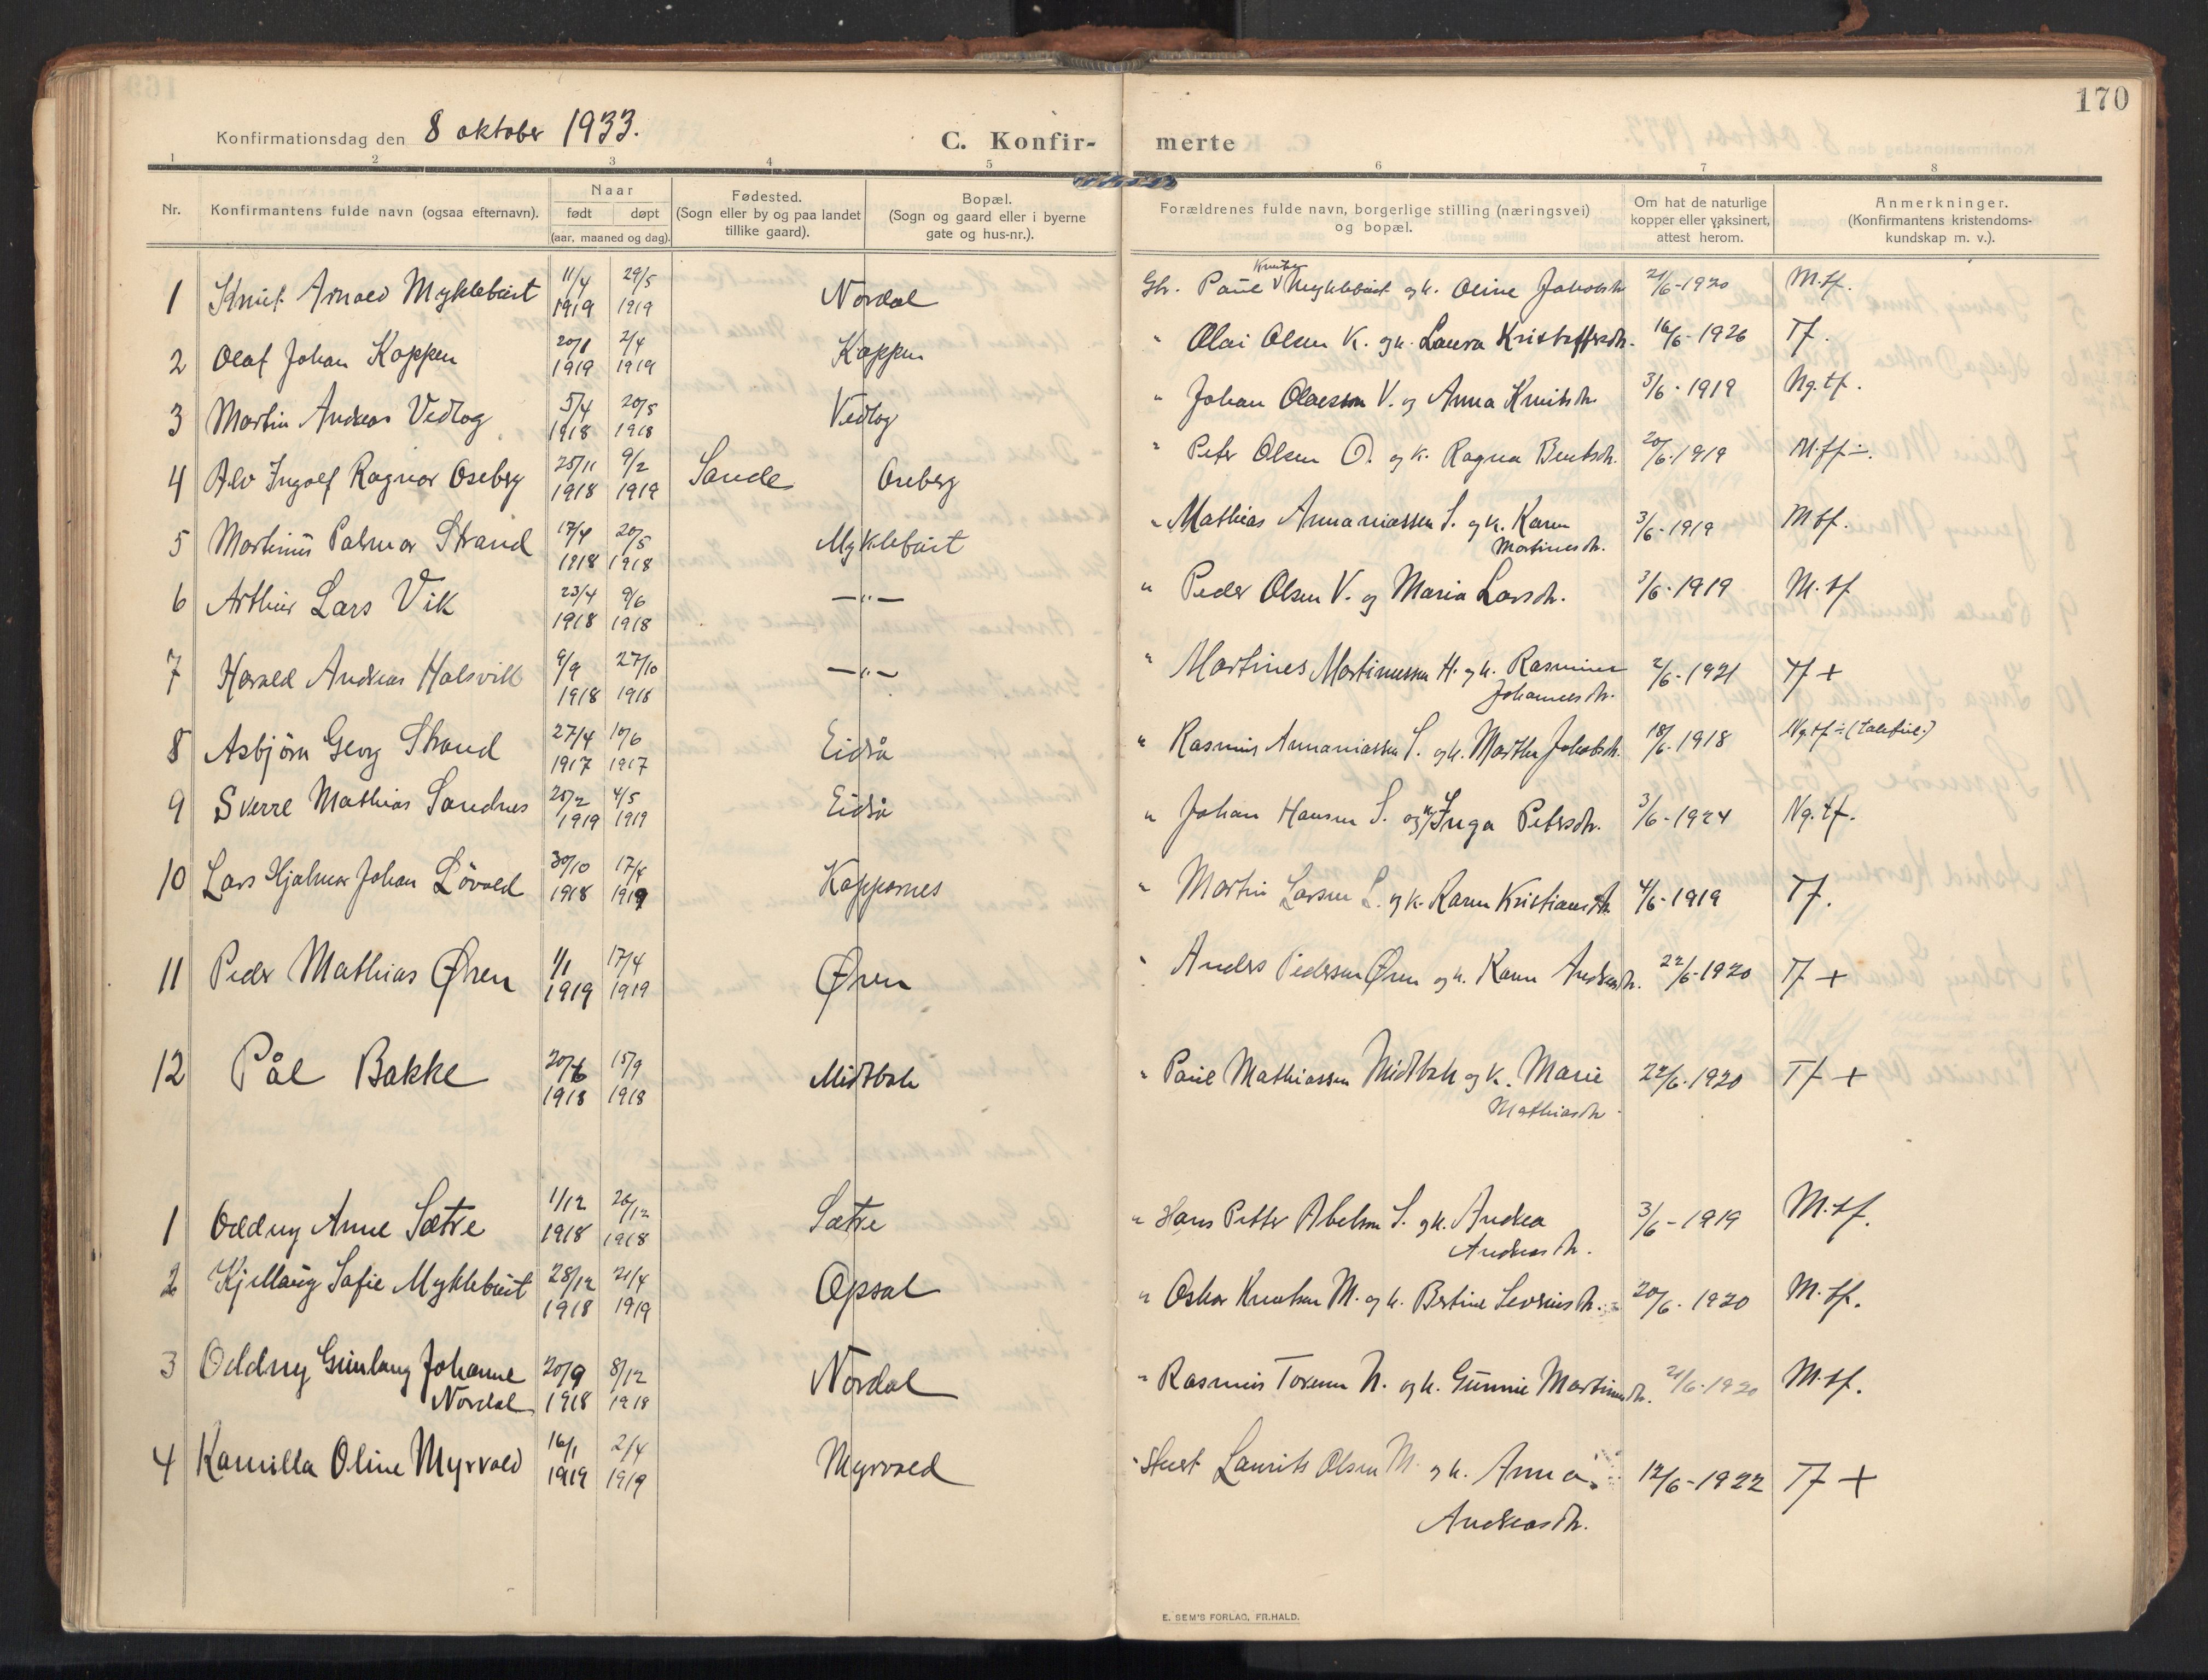 170
Konfirmationsdag den 8 oktober 1933.
C. Konfir- merte
1 2 3 4 5 6 7 8
Nr.
Konfirmantens fulde navn (ogsaa efternavn).
Naar
født døpt
(aar, maaned og dag).
Fødested.
(Sogn eller by og paa landet
tillike gaard).
Bopæl.
(Sogn og gaard eller i byerne
gate og hus-nr.).
Forældrenes fulde navn, borgerlige stilling (næringsvei)
og bopæl.
Om hat de naturlige
kopper eller vaksinert,
attest herom.
Anmerkninger.
(Konfirmantens kristendoms-
kundskap m. v.).
1 Knut Arnold Myklebust 11/4 1919 29/5 1919 Nordal Gbr. Paul Knutsen Myklebust og k. Oline Jakobsdr. 21/6-1920 M.tf.
2 Olaf Johan Koppen 20/1 1919 2/4 1919 Koppen " Olai Olsen K. og k. Laura Kristoffersdr. 16/6-1926 Tf.
3 Martin Andreas Vedlog 5/4 1918 20/5 1918 Vedlog " Johan Olaesson V. og Anna Knutsdr. 3/6-1919 Ng.tf.
4 Alv Ingolf Ragnar Oseberg 25/11 1918 9/2 1919 Sande Oseberg " Peter Olsen O. og k. Ragna Bentsdr. 20/6-1919 M.tf÷.
5 Martinus Palmar Strand 17/4 1918 20/5 1918 Myklebust " Mathias Annaniassen S. og k. Karen
Martinesdr. 3/6-1919 M tf.
6 Arthur Lars Vik 23/4 1918 9/6 1918 —"— " Peder Olsen V. og Maria Larsdr. 3/6-1919 M.tf
7 Harald Andreas Halsvik 9/9 1918 27/10 1918 —"— " Martines Martinussen H. og k. Rasmine
Johannesdr. 2/6-1921 Tf +
8 Asbjörn Georg Strand 27/4 1917 10/6 1917 Eidså " Rasmus Annaniassen S. og k. Marthe Jakobsdr. 18/6-1918 Ng.tf÷
9 Sverre Mathias Sandnes 25/2 1919 4/5 1919 Eidså " Johan Hansen S. og k. Inga Petersdr. 3/6-1924 Ng.tf.
10 Lars Hjalmar Johan Lövold 30/10 1918 17/4 1919 Koparnes " Martin Larsen L. og k. Karen Kristiansdr. 4/6-1919 Tf.
11 Peder Mathias Øren 1/1 1919 17/4 1919 Øren " Anders Pedersen Øren og k. Karen Andersdr. 22/6-1920 Tf +
12 Pål Bakke 20/6 1918 15/9 1918 Midtbak " Paul Mathiassen Midtbak og k. Marie
Mathiasdr. 22/6-1920 Tf +
1 Oddny Anne Sætre 1/12 1918 26/12 1918 Sætre " Hans Petter Abelsen S. og k. Andrea
Andreasdr. 3/6-1919 M.tf.
2 Kjellaug Sofie Myklebust 28/12 1918 21/4 1919 Opsal " Oskar Knutsen M. og k. Bertine Severinsdr. 20/6-1920 M.tf.
3 Oddny Gunlaug Johanne
Nordal 20/9 1918 8/12 1918 Nordal " Rasmus Toresen N. og k. Gunnie Martinusdr. 21/6-1920 M.tf.
4 Kamilla Oline Myrvold 16/1 1919 2/4 1919 Myrvold " Laurits Olsen M. og k. Anna
Andreasdr. 12/6-1922 Tf +
E. SEM'S FORLAG, FR.HALD.